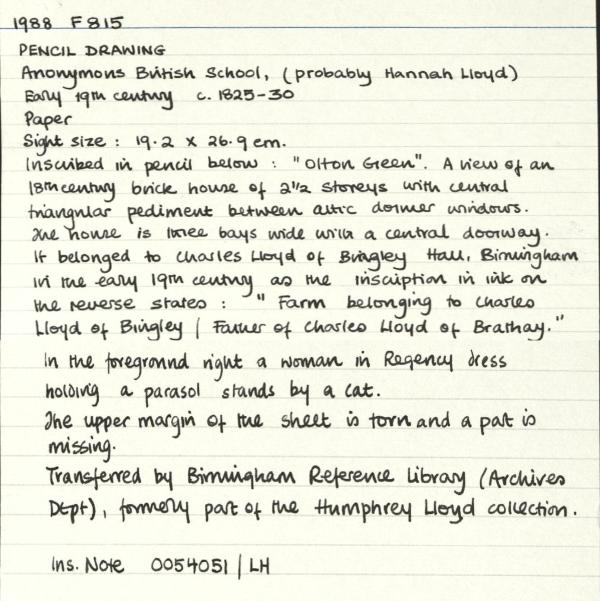 1988 F815
PENCIL DRAWING
Anonymous British School, (probably Hannah Lloyd)
Early 19th century c. 1825-30
Paper
Sight size : 19.2 x 26.9 cm.
Inscribed in pencil below : "Olton Green". A view of an
18th century brick house of 2 1/2 storeys with central
triangular pediment between attic dormer windows.
The house is three bays wide with a central doorway.
It belonged to Charles Lloyd of Bingley Hall, Birmingham
in the early 19th century as the inscription in ink on
the reverse states : " Farm belonging to Charles
Lloyd of Bingley / Father of Charles Lloyd of Brathay."
In the foreground right a woman in Regency dress
holding a parasol stands by a cat.
The upper margin of the sheet is torn and a part is
missing.
Transferred by Birmingham Reference Library (Archives
Dept), formerly part of the Humphrey Lloyd collection.
Ins. Note 0054051 / LH